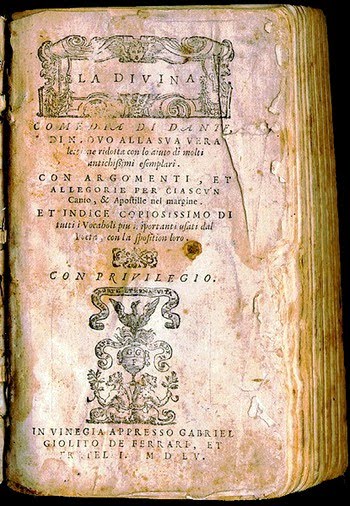 LA DIVINA
COMEDIA DI DANTE,
DI NVOVO ALLA SVA VERA
lettione ridotta con lo aiuto di molti
antichissimi esemplari.
CON ARGOMENTI, ET
ALLEGORIE PER CIASCVN
Canto, & Apostille nel margine.
ET INDICE COPIOSISSIMO DI
tutti i Vocaboli piu importanti usati dal
Poeta, con la sposition loro.
CON PRIVILEGIO.
GGF
IN VINEGIA APPRESSO GABRIEL
GIOLITO DE FERRARI, ET
FRATELLI. M D LV.